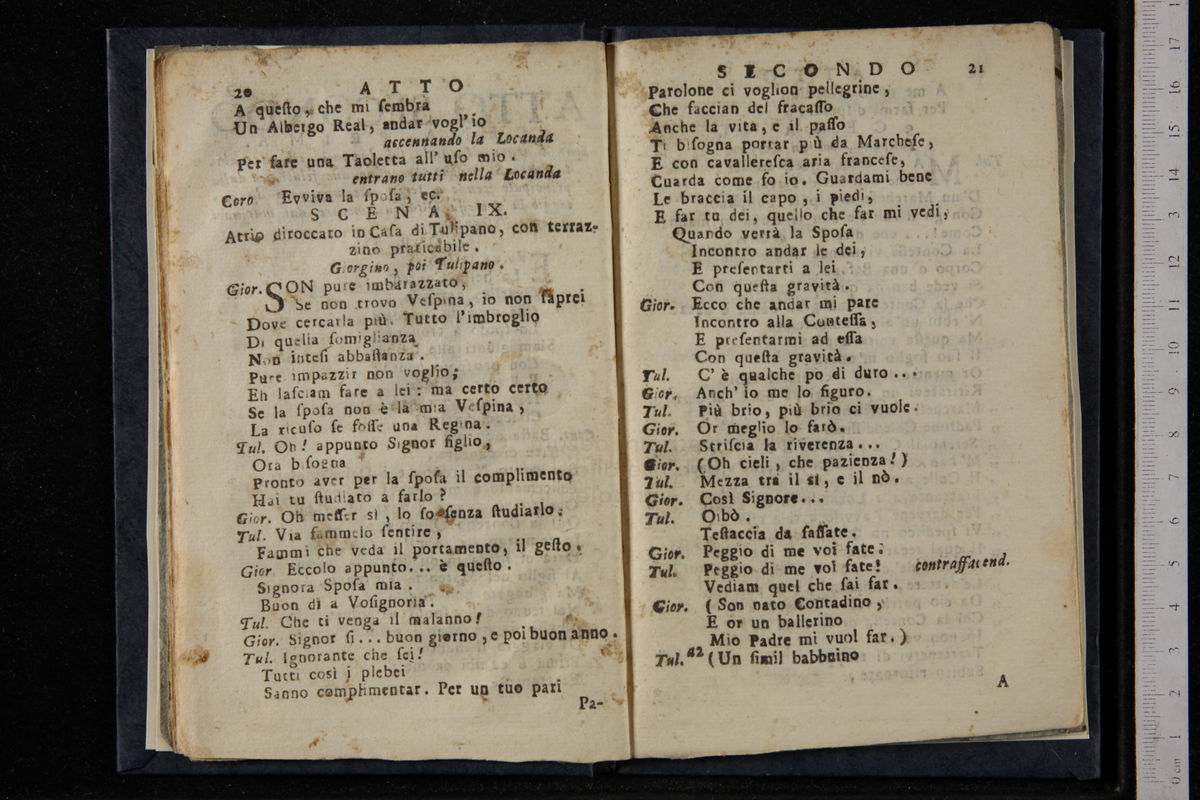 20 ATTO
A queſto, che mi ſembra
Un Albergo Real, andar vogl'io
accennando la Locanda
Per fare una Taoletta all' uſo mio.
entrano tutti nella Locanda
Coro Evviva la ſpoſa, ec.
SCENA IX.
Atrio diroccato in Caſa di Tulipano, con terraz-
zino praticabile.
Giorgino, poi Tulipano.
Gior. SON pure imbarazzato,
Se non trovo Veſpina, io non ſaprei
Dove cercarla più. Tutto l'imbroglio
Di quella ſomiglianza
Non inteſi abbaſtanza.
Pure impazzir non voglio;
Eh laſciam fare a lei: ma certo certo
Se la ſpoſa non è la mia Veſpina,
La ricuſo ſe foſſe una Regina.
Tul. Oh! appunto Signor figlio,
Ora biſogna
Pronto aver per la ſpoſa il complimento
Hai tu ſtudiato a farlo?
Gior. Oh meſſer sì, lo ſo ſenza ſtudiarlo.
Tul. Via fammelo ſentire,
Fammi che veda il portamento, il geſto.
Gior Eccolo appunto... è queſto.
Signora Spoſa mia.
Buon dì a Voſignoria.
Tul. Che ti venga il malanno!
Gior. Signor ſi... buon giorno, e poi buon anno.
Tul. Ignorante che ſei!
Tutti così i plebei
Sanno complimentar. Per un tuo pari
Pa-
SECONDO 21
Parolone ci voglion pellegrine,
Che faccian del fracaſſo
Anche la vita, e il paſſo
Ti biſogna portar più da Marcheſe,
E con cavallereſca aria franceſe,
Guarda come fo io. Guardami bene
Le braccia il capo, i piedi,
E far tu dei, quello che far mi vedi,
Quando verrà la Spoſa
Incontro andar le dei,
E preſentarti a lei
Con queſta gravità.
Gior. Ecco che andar mi pare
Incontro alla Conteſſa,
E preſentarmi ad eſſa
Con queſta gravità.
Tul. C'è qualche po di duro...
Gior. Anch' io me lo figuro.
Tul. Più brio, più brio ci vuole.
Gior. Or meglio lo farò.
Tul. Striſcia la riverenza...
Gior. (Oh cieli, che pazienza!)
Tul. Mezza tra il sì, e il nò.
Gior. Così Signore...
Tul. Oibò.
Teſtaccia da ſaſſate.
Gior. Peggio di me voi fate.
Tul. Peggio di me voi fate! contraffacend.
Vediam quel che ſai far.
Gior. (Son nato Contadino,
E or un ballerino
Mio Padre mi vuol far.)
Tul. a2 (Un ſimil babbuino
A